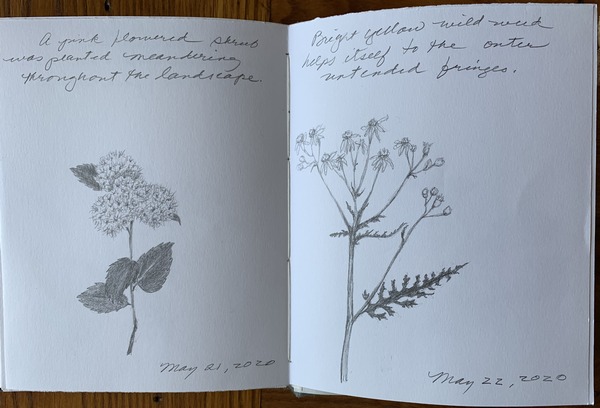 A pink flowered shrub
was planted meandering
throughout the landscape.
May 21, 2020
Bright yellow wild weed
helps itself to the outer
untended fringes.
May 22, 2020